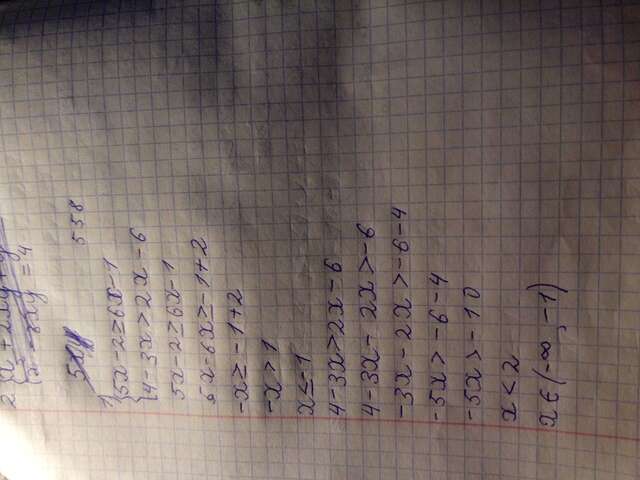 = 4
558
1) { 5x-2≥6x-1
{ 4-3x>2x-6
5x-2≥6x-1
5x-6x≥-1+2
-x≥-1+2
-x>1
x≤-1
4-3x>2x-6
4-3x-2x>-6
-3x-2x>-6-4
-5x>-6-4
-5x>-10
x<2
x∈(-∞,-1)